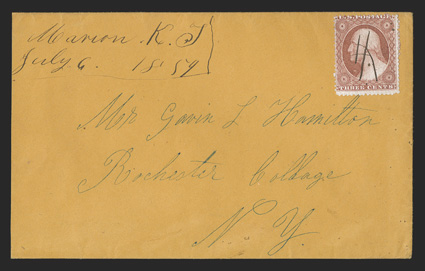 Marion K. T
July 6. 1859
U.S. POSTAGE
THREE CENTS
Mr Gavin L Hamilton
Rochester Collage
N Y.